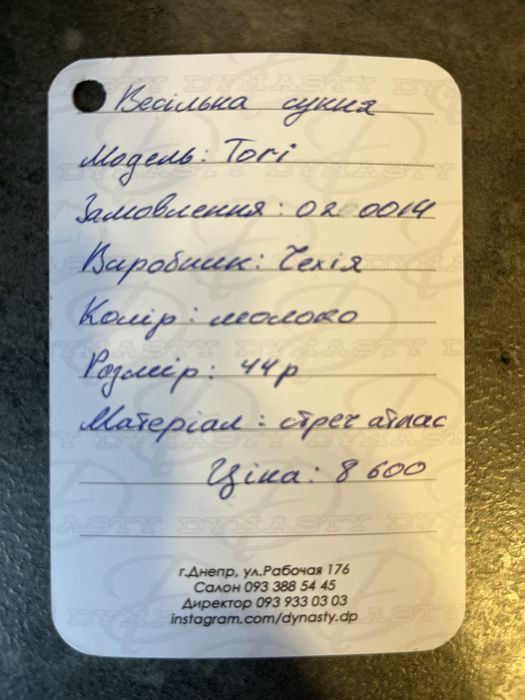 Весілька сукня
Модель: Tori
Замовлення: 020 0014
Виробник: Чехія
Колір: молоко
Розмір: 44р
Матеріал: стреч атлас
Ціна: 8 600
г.Днепр, ул.Рабочая 176
Салон 093 388 54 45
Директор 093 933 03 03
instagram.com/dynasty.dp